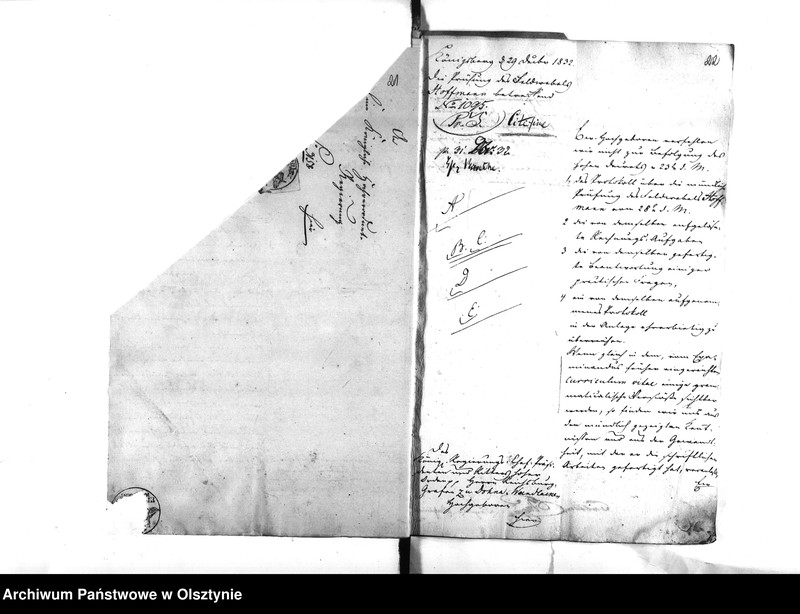 21
An
Eine Königlich Hochverordnete
Regierung
hier
22
Königsberg d 29 Decbr 1832.
Die Prüfung des Feldwebels
Hoffmann betreffend
No 1095.
Cito
pr. 31. Dec. 32
A
B. C.
D
E
Ew. Hochgeboren verfehlen
wir nicht zur Befolgung des
hohen Decrets v 23t d. M.
1, das Protokoll über die mündliche
Prüfung des Feldwebels Hoff
mann vom 28t d. M.
2 die von demselben aufgelöse
te Rechnungs-Aufgaben
3 die von demselben gefertig
te Beantwortung einiger
practischen Fragen,
4 ein von demselben aufgenom
menes Protokoll
in der Anlage ehrerbietig zu
überreichen.
Wenn gleich in dem, vom Exa
minandus früher eingereichten
curriculum vitae einige gram
matikalische Verstöße sichtbar
werden, so finden wir uns aus
den mündlich gezeigten Kennt
nissen und aus der Gewandt
heit, mit der er die schriftlichen
Arbeiten gefertigt hat,
Des
Königl. Regierungs Chef-Präsi
denten und Ritters hoher
Orden, Herrn
Grafen zu Dohna-Wundlacken
Hochgeboren
hier
Archiwum Państwowe w Olsztynie